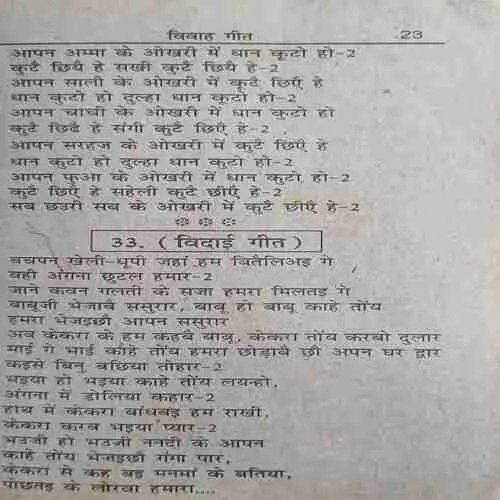 विवाह गीत 23
आपन अम्मा के ओखरी में धान कूटो हो-2
कुटै छियै हे सखी कुटै छियै हे-2
आपन साली के ओखरी में कुटै छिऐँ हे
धान कूटो हो दुल्हा धान कूटो हो-2
आपन चाची के ओखरी में धान कूटो हो
कुटै छिढै हे संगी कुटै छिऐँ हे-2
आपन सरहज के ओखरी में कुटै छिऐँ हे
धान कुटो हो दुल्हा धान कूटो हो-2
आपन फुआ के ओखरी में धान कूटो हो-2
कुटै छिऐँ हे सहेली कुटै छीऐँ हे-2
सब छउरी सब के ओखरी में कुटैँ छीऐँ हे-2
33. (विदाई गीत)
बचपन खेली-धूपी जहाँ हम बितैलिअइ गे
वही अँगना छुटल हमार-2
जाने कवन गलती के सजा हमरा मिलतइ गे
बाबूजी भेजाबै ससुरार, बाबू हो बाबू काहे तोंय
हमरा भेजइछी आपन ससुरार
अब केकरा के हम कहबै बाबू, केकरा तोंय करबो दुलार
माई गे माई काहे तोंय हमरा छोड़ाबै छी अपन घर द्वार
कइसे बिनु बछिया तोहार-2
भइया हो भइया काहे तोंय लयन्हो,
अंगना में डोलिया कहार-2
हाथ में केकरा बांधबइ हम राखी,
केकरा करब भइया प्यार-2
भउजी हो भउजी ननदी के आपन
काहे तोंय भेजइछी गंगा पार,
केकरा से कह बइ मनमां के बतिया,
पोछतइ के लोरवा हमारा....